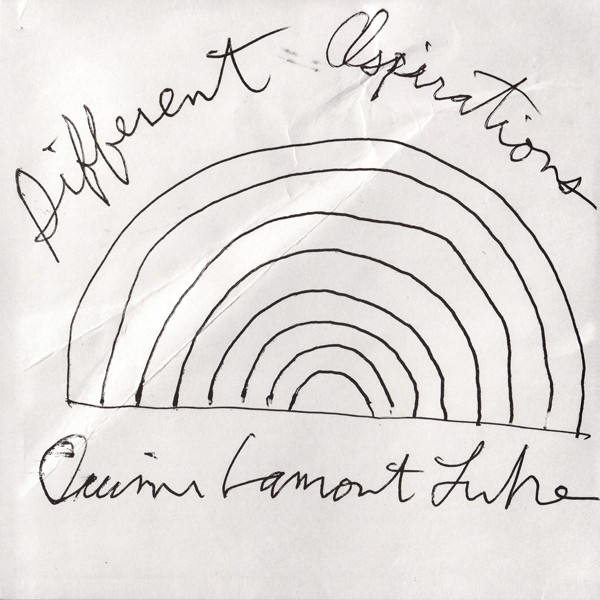 Different Aspirations
Quinn Lamont Luke